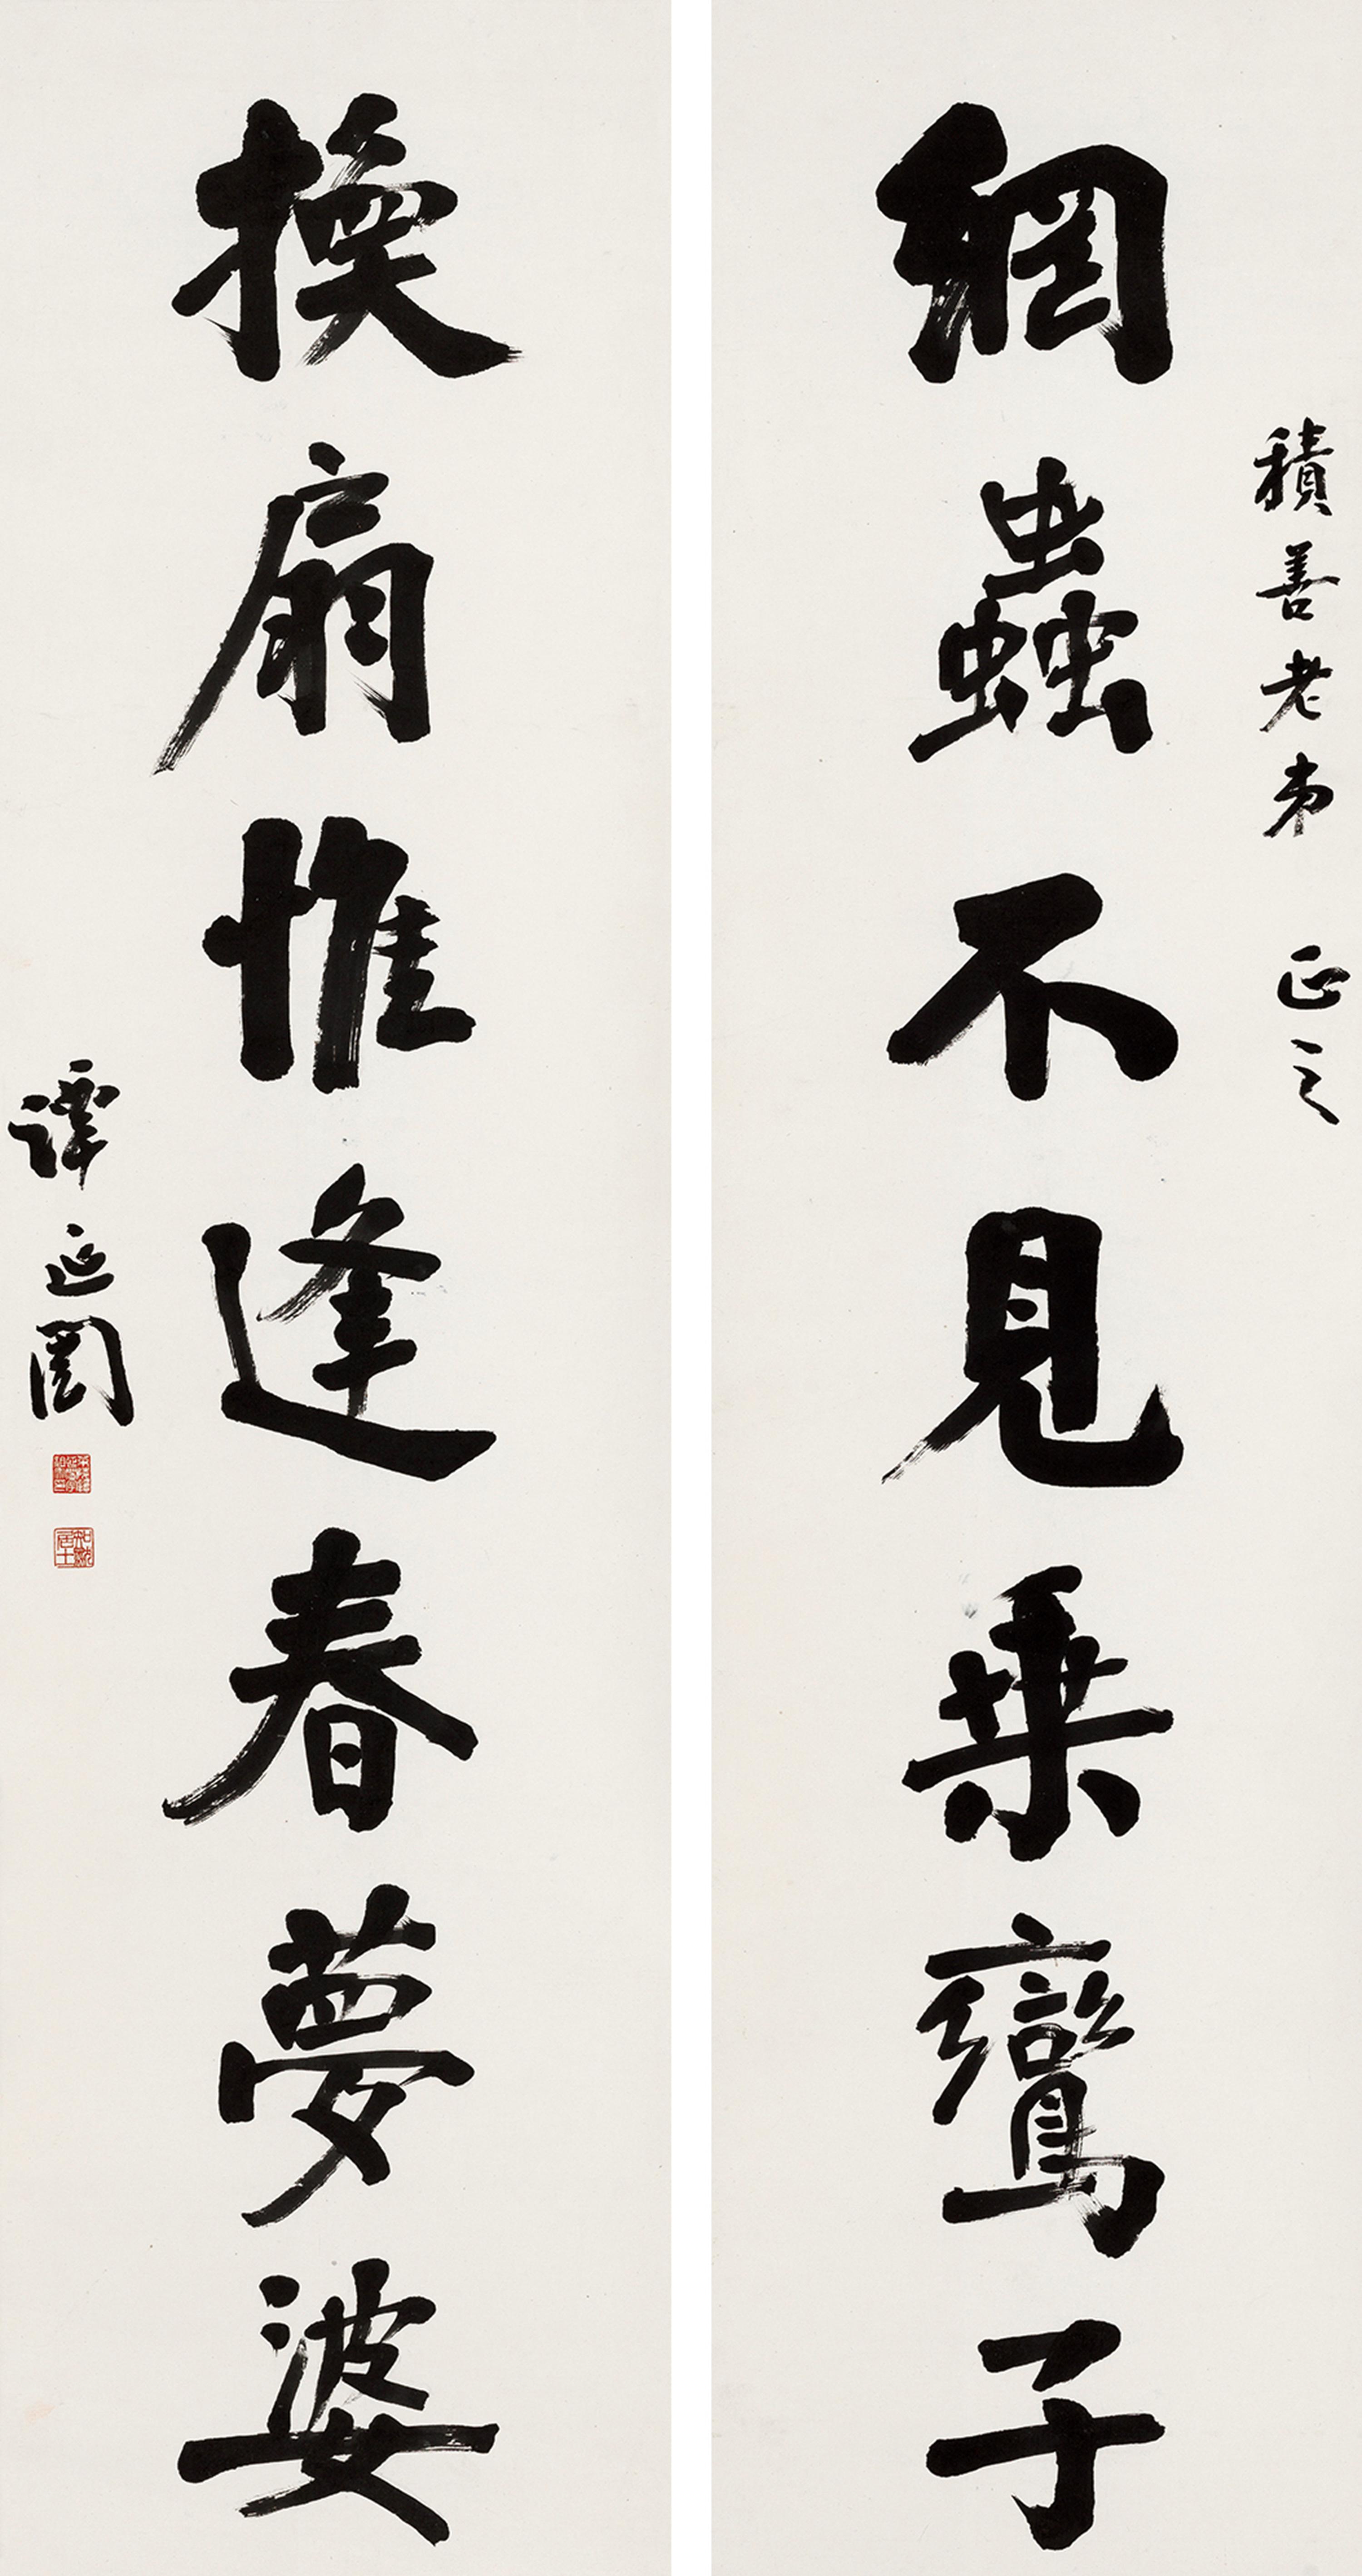 積善老弟 正之
網蟲不見乘鸞子
換扇惟逢春夢婆
譚延闓